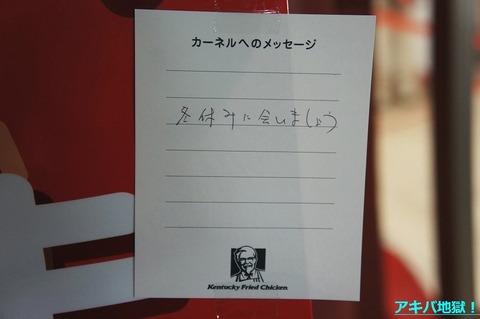 カーネルへのメッセージ
冬休みに会いましょう
Kentucky Fried Chicken
アキバ地獄！